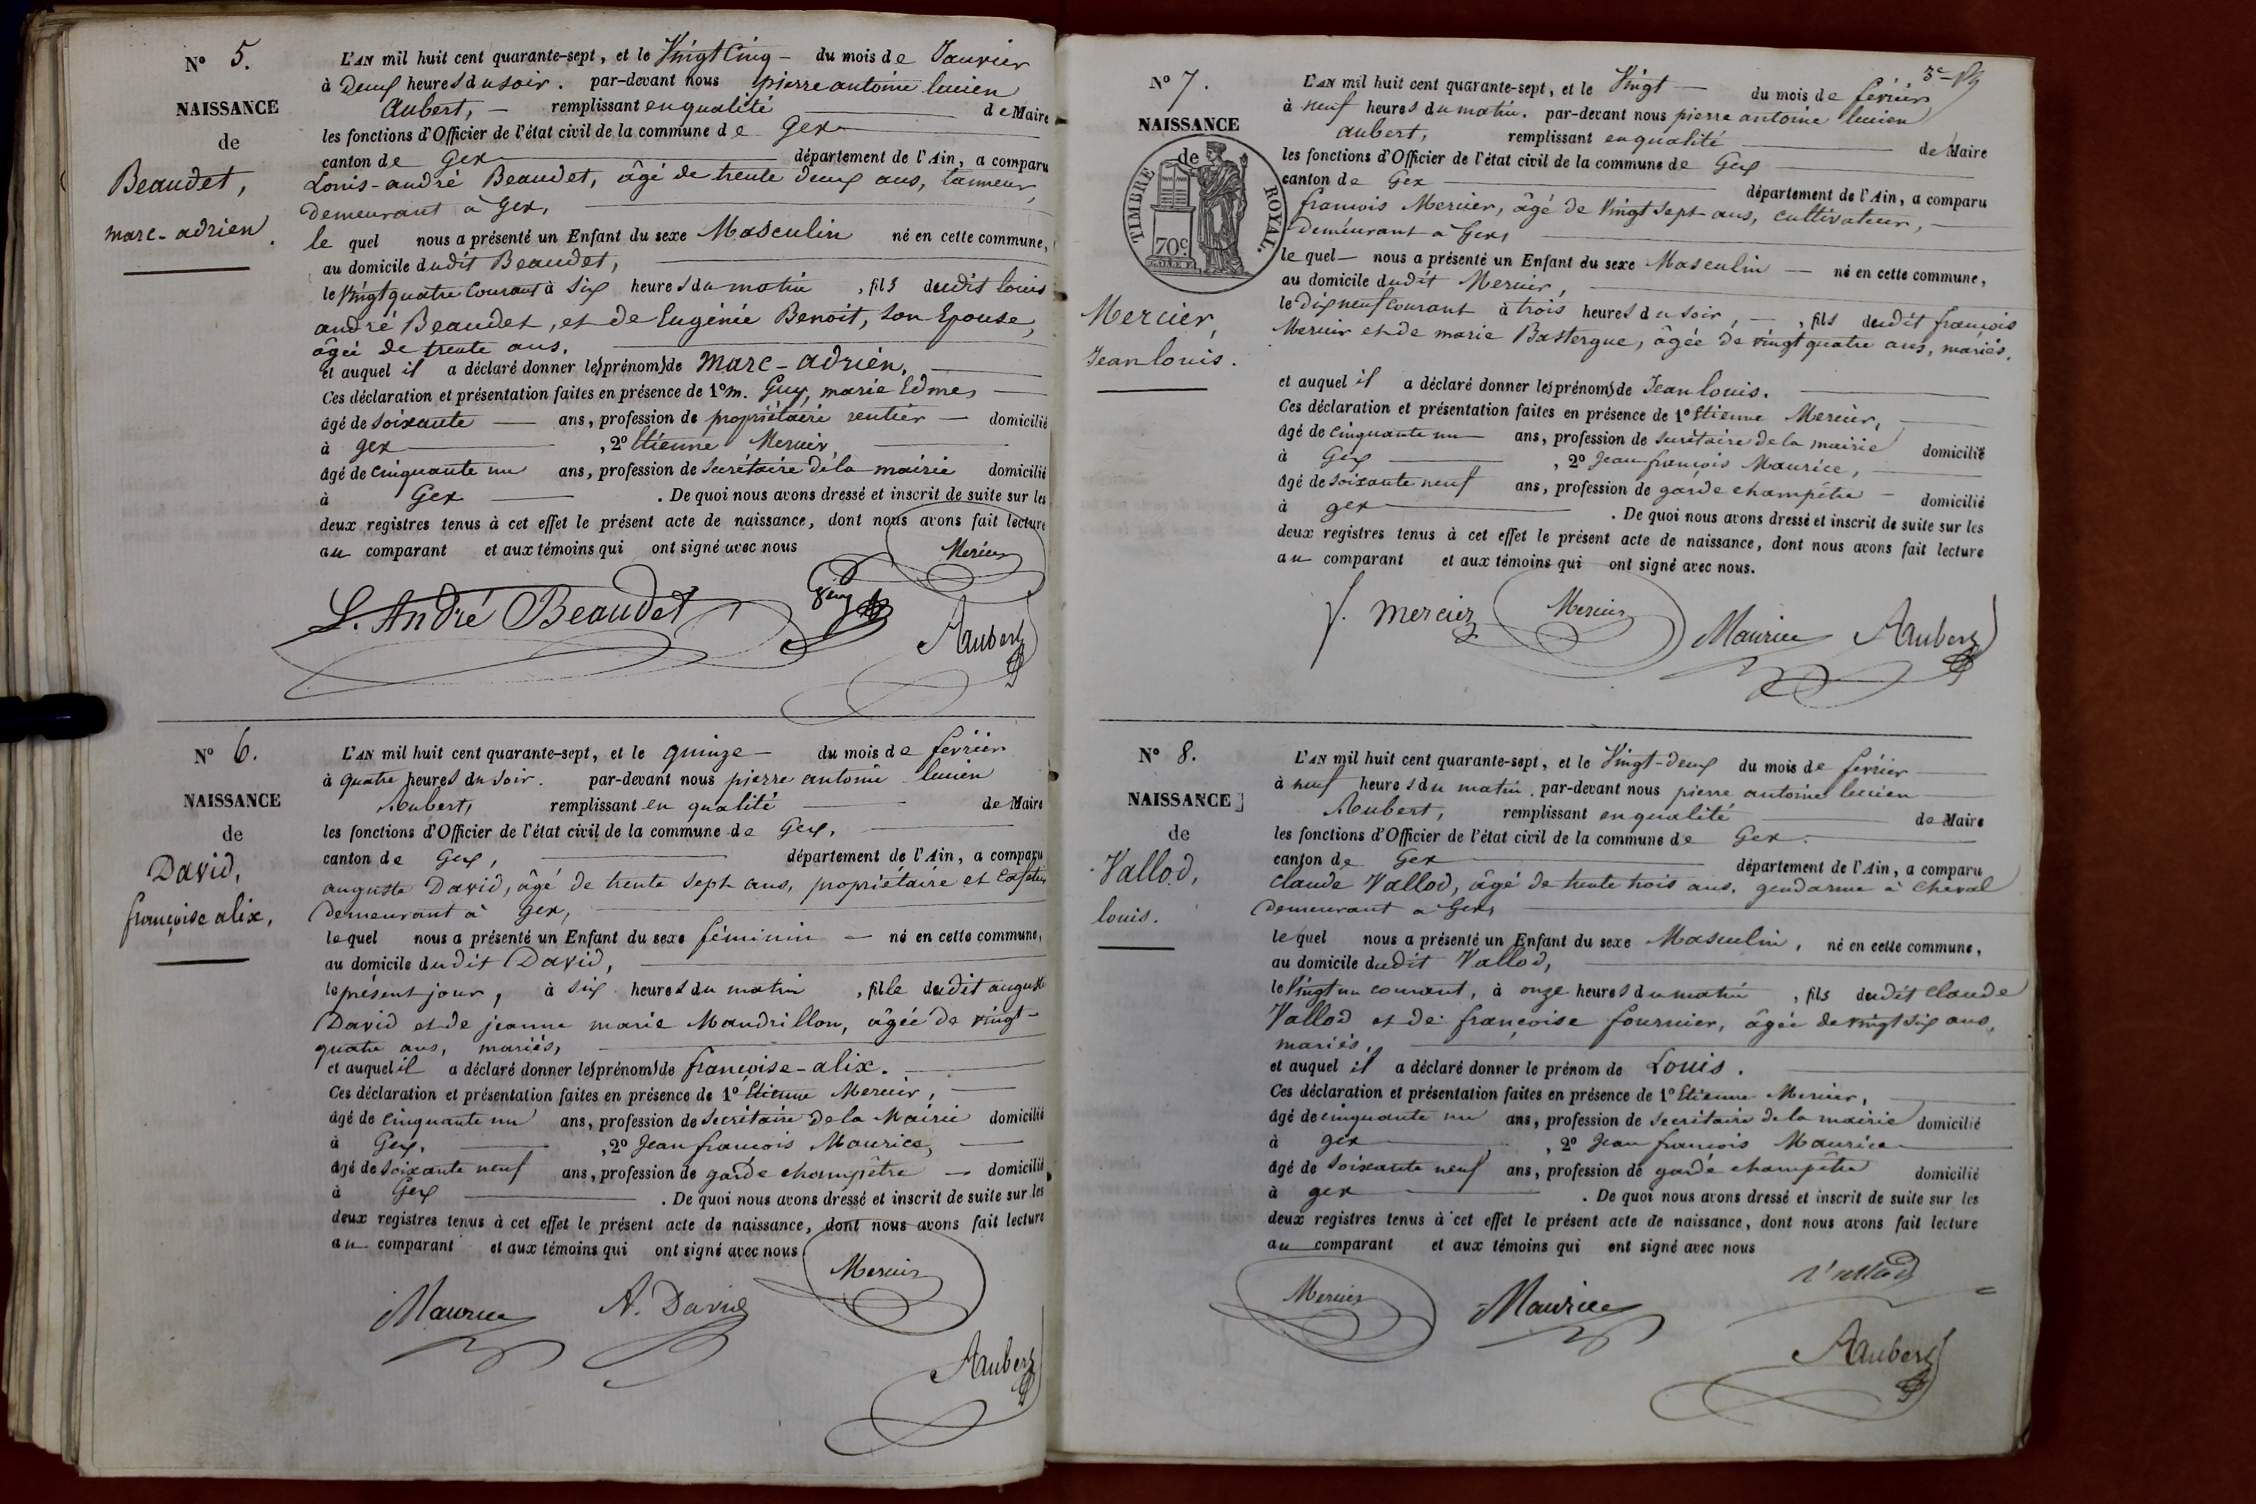 N° 5.
NAISSANCE
de
Beaudet,
marc-adrien.
L'AN mil huit cent quarante-sept, et le Vingt Cinq — du mois de Janvier
à Deux heures du soir. par-devant nous pierre antoine lucien
Aubert, — remplissant en qualité — de Maire
les fonctions d'Officier de l'état civil de la commune de Gex —
canton de Gex — département de l'Ain, a comparu
Louis-andré Beaudet, âgé de trente deux ans, tanneur,
demeurant à Gex, —
le quel nous a présenté un Enfant du sexe Masculin né en cette commune,
au domicile dudit Beaudet, —
le Vingt quatre Courant à six heures du matin, fils dudit louis
andré Beaudet, et de Eugénie Benoit, son Epouse,
âgée de trente ans. —
et auquel il a déclaré donner le(s) prénom(s) de Marc-adrien. —
Ces déclaration et présentation faites en présence de 1° m. Guy, marie Edme, —
âgé de soixante — ans, profession de propriétaire rentier — domicilié
à gex —, 2° Etienne Mercier —
âgé de cinquante un ans, profession de secrétaire de la mairie domicilié
à Gex — . De quoi nous avons dressé et inscrit de suite sur les
deux registres tenus à cet effet le présent acte de naissance, dont nous avons fait lecture
au comparant et aux témoins qui ont signé avec nous
Mercier
L. André Beaudet Guy
Aubert
N° 6.
NAISSANCE
de
David,
françoise alix,
L'AN mil huit cent quarante-sept, et le quinze — du mois de février
à quatre heures du soir. par-devant nous pierre antoine lucien
Aubert, remplissant en qualité — de Maire
les fonctions d'Officier de l'état civil de la commune de Gex, —
canton de Gex, — département de l'Ain, a comparu
auguste David, âgé de trente sept ans, propriétaire et
demeurant à Gex, —
le quel nous a présenté un Enfant du sexe féminin — né en cette commune,
au domicile dudit David, —
le présent jour, à six heures du matin, fille dudit auguste
David et de jeanne marie Mandrillon, âgée de vingt-
quatre ans, mariés, —
et auquel il a déclaré donner le(s) prénom(s) de françoise-alix. —
Ces déclaration et présentation faites en présence de 1° Etienne Mercier, —
âgé de cinquante un ans, profession de Secrétaire de la Mairie domicilié
à Gex, —, 2° Jean françois Maurice, —
âgé de soixante neuf ans, profession de garde champêtre — domicilié
à Gex — . De quoi nous avons dressé et inscrit de suite sur les
deux registres tenus à cet effet le présent acte de naissance, dont nous avons fait lecture
au comparant et aux témoins qui ont signé avec nous
Maurice A. David Mercier
Aubert
3e
N° 7.
NAISSANCE
de
TIMBRE ROYAL.
70c
Mercier,
Jean louis.
L'AN mil huit cent quarante-sept, et le Vingt — du mois de février
à neuf heures du matin. par-devant nous pierre antoine lucien
aubert, remplissant en qualité — de Maire
les fonctions d'Officier de l'état civil de la commune de Gex —
canton de Gex — département de l'Ain, a comparu
françois Mercier, âgé de Vingt sept ans, cultivateur, —
demeurant à Gex, —
le quel — nous a présenté un Enfant du sexe Masculin — né en cette commune,
au domicile dudit Mercier, —
le Dix neuf Courant à trois heures du soir, —, fils dudit françois
Mercier et de marie Bastergue, âgée de vingt quatre ans, mariés.
et auquel il a déclaré donner le(s) prénom(s) de Jean louis. —
Ces déclaration et présentation faites en présence de 1° Etienne Mercier, —
âgé de cinquante un — ans, profession de secrétaire de la mairie domicilié
à Gex —, 2° Jean françois Maurice, —
âgé de soixante neuf ans, profession de garde champêtre — domicilié
à gex — . De quoi nous avons dressé et inscrit de suite sur les
deux registres tenus à cet effet le présent acte de naissance, dont nous avons fait lecture
au comparant et aux témoins qui ont signé avec nous.
f. mercier Mercier Maurice Aubert
N° 8.
NAISSANCE
de
Vallod,
louis.
L'AN mil huit cent quarante-sept, et le Vingt-deux du mois de février —
à neuf heures du matin. par-devant nous pierre antoine lucien —
Aubert, remplissant en qualité — de Maire
les fonctions d'Officier de l'état civil de la commune de Gex. —
canton de Gex — département de l'Ain, a comparu
claude Vallod, âgé de trente trois ans, gendarme à cheval
demeurant à Gex, —
le quel nous a présenté un Enfant du sexe Masculin, né en cette commune,
au domicile dudit Vallod, —
le Vingt un courant, à onze heures du matin, fils dudit claude
Vallod et de françoise fournier, âgée de vingt six ans,
mariés, —
et auquel il a déclaré donner le prénom de Louis. —
Ces déclaration et présentation faites en présence de 1° Etienne Mercier, —
âgé de cinquante un ans, profession de secrétaire de la mairie domicilié
à gex —, 2° Jean françois Maurice —
âgé de soixante neuf ans, profession de garde champêtre domicilié
à gex — . De quoi nous avons dressé et inscrit de suite sur les
deux registres tenus à cet effet le présent acte de naissance, dont nous avons fait lecture
au comparant et aux témoins qui ont signé avec nous
Mercier Maurice Vallod
Aubert